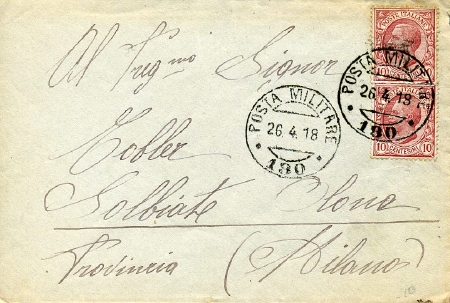 POSTE ITALIANE
Al Preg.mo Signor
POSTA MILITARE
26.4.18
190
POSTA MILITARE
26.4.18
190
10 CENTESIMI 10
Tobler
Solbiate Olona
Provincia (Milano)